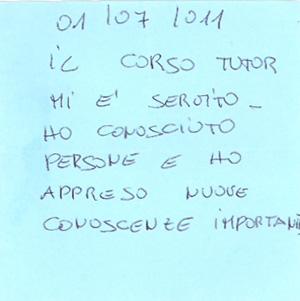 01/07/011
IL CORSO TUTOR
MI E' SERVITO_
HO CONOSCIUTO
PERSONE E HO
APPRESO NUOVE
CONOSCENZE IMPORTANTI